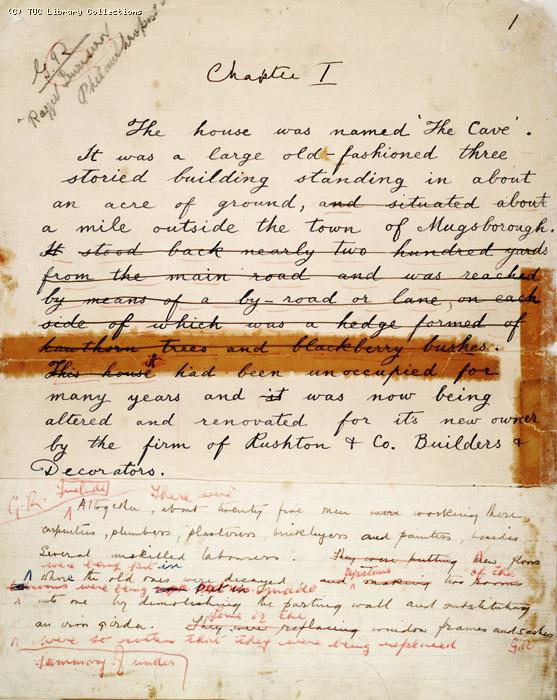 (C) TUC Library Collections
1
G.R
"Ragged
Chapter I
The house was named 'The Cave'.
It was a large old-fashioned three
storied building standing in about
an acre of ground, and situated about
a mile outside the town of Mugsborough.
It stood back nearly two hundred yards
from the main road and was reached
by means of a by-road or lane, on each
side of which was a hedge formed of
hawthorn trees and blackberry bushes.
it
This house had been unoccupied for
many years and it was now being
altered and renovated for its new owner
by the firm of Rushton & Co. Builders &
Decorators.
G.R. Include There were
Altogether, about twenty five men were working there,
carpenters, plumbers, plasterers, bricklayers and painters, besides
Several unskilled labourers. They were putting New floors
were being put in
where the old ones were decayed and making two rooms
upstairs of the
were being made
into one by demolishing the parting wall and substituting
an iron girder. They were replacing window frames and sashes
Some of the
were so rotten that they were being replaced G.R
Summary of under